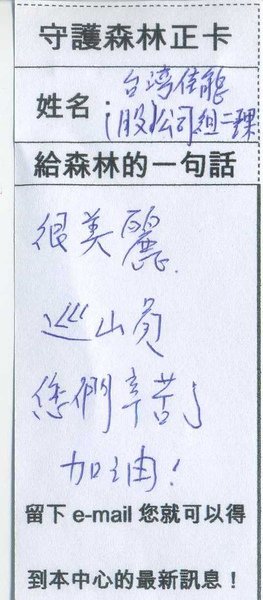 守護森林正卡
姓名：台灣佳能
(股)公司組二課
給森林的一句話
很美麗.
巡山員
您們辛苦了
加油!
留下 e-mail 您就可以得
到本中心的最新訊息！